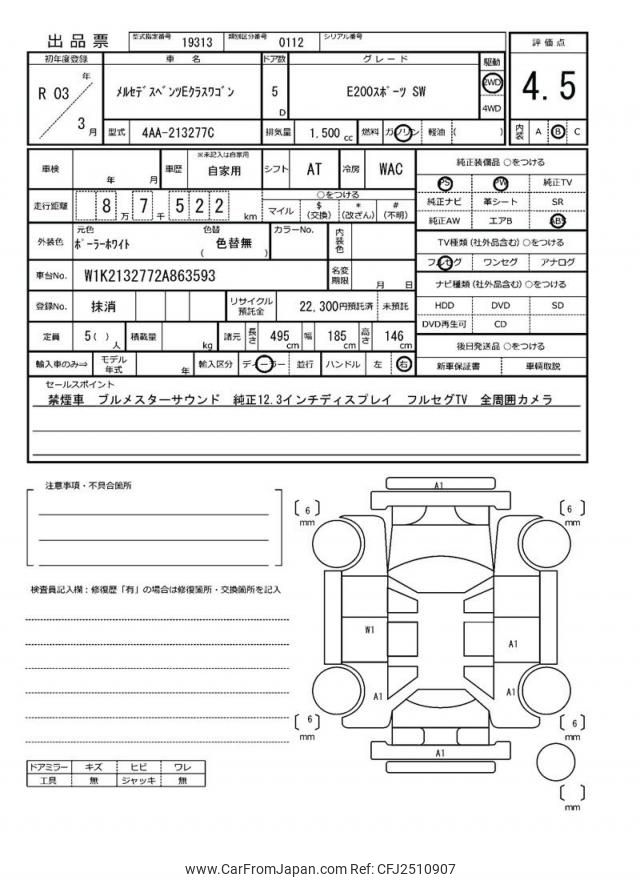 出品票 型式指定番号 19313 類別区分番号 0112 シリアル番号
初年度登録 車名 ドア数 グレード 駆動 評価点
R 03 年 3 月 メルセデスベンツEクラスワゴン 5 D E200スポーツ SW 2WD 4WD 4.5
型式 4AA-213277C 排気量 1.500 cc 燃料 ガソリン 軽油 ( ) 内装 A B C
車検 年 月 車歴 ※未記入は自家用 自家用 シフト AT 冷房 WAC
純正装備品 ○をつける
PS PW 純正TV
純正ナビ 革シート SR
純正AW エアB ABS
走行距離 8 万 7 千 5 2 2 km
○をつける
マイル $ (交換) * (改ざん) # (不明)
外装色 元色 ポーラーホワイト 色替 ( 色替無 ) カラーNo. 内装色
TV種類 (社外品含む) ○をつける
フルセグ ワンセグ アナログ
車台No. W1K2132772A863593 名変期限 月 日
ナビ種類 (社外品含む) ○をつける
HDD DVD SD
DVD再生可 CD
登録No. 抹消 リサイクル預託金 22,300円預託済 未預託
定員 5 ( ) 人 積載量 kg 諸元 長さ 495 cm 幅 185 cm 高さ 146 cm
後日発送品 ○をつける
新車保証書 車輌取説
輸入車のみ⇒ モデル年式 年 輸入区分 ディーラー 並行 ハンドル 左 右
セールスポイント
禁煙車 ブルメスターサウンド 純正12.3インチディスプレイ フルセグTV 全周囲カメラ
注意事項・不具合箇所
検査員記入欄：修復歴「有」の場合は修復箇所・交換箇所を記入
A1
[ 6 ] mm
[ 6 ] mm
W1
A1
A1
A1
[ 6 ] mm
[ 6 ] mm
A1
[ ] mm
ドアミラー キズ ヒビ ワレ
工具 無 ジャッキ 無
www.CarFromJapan.com Ref: CFJ2510907